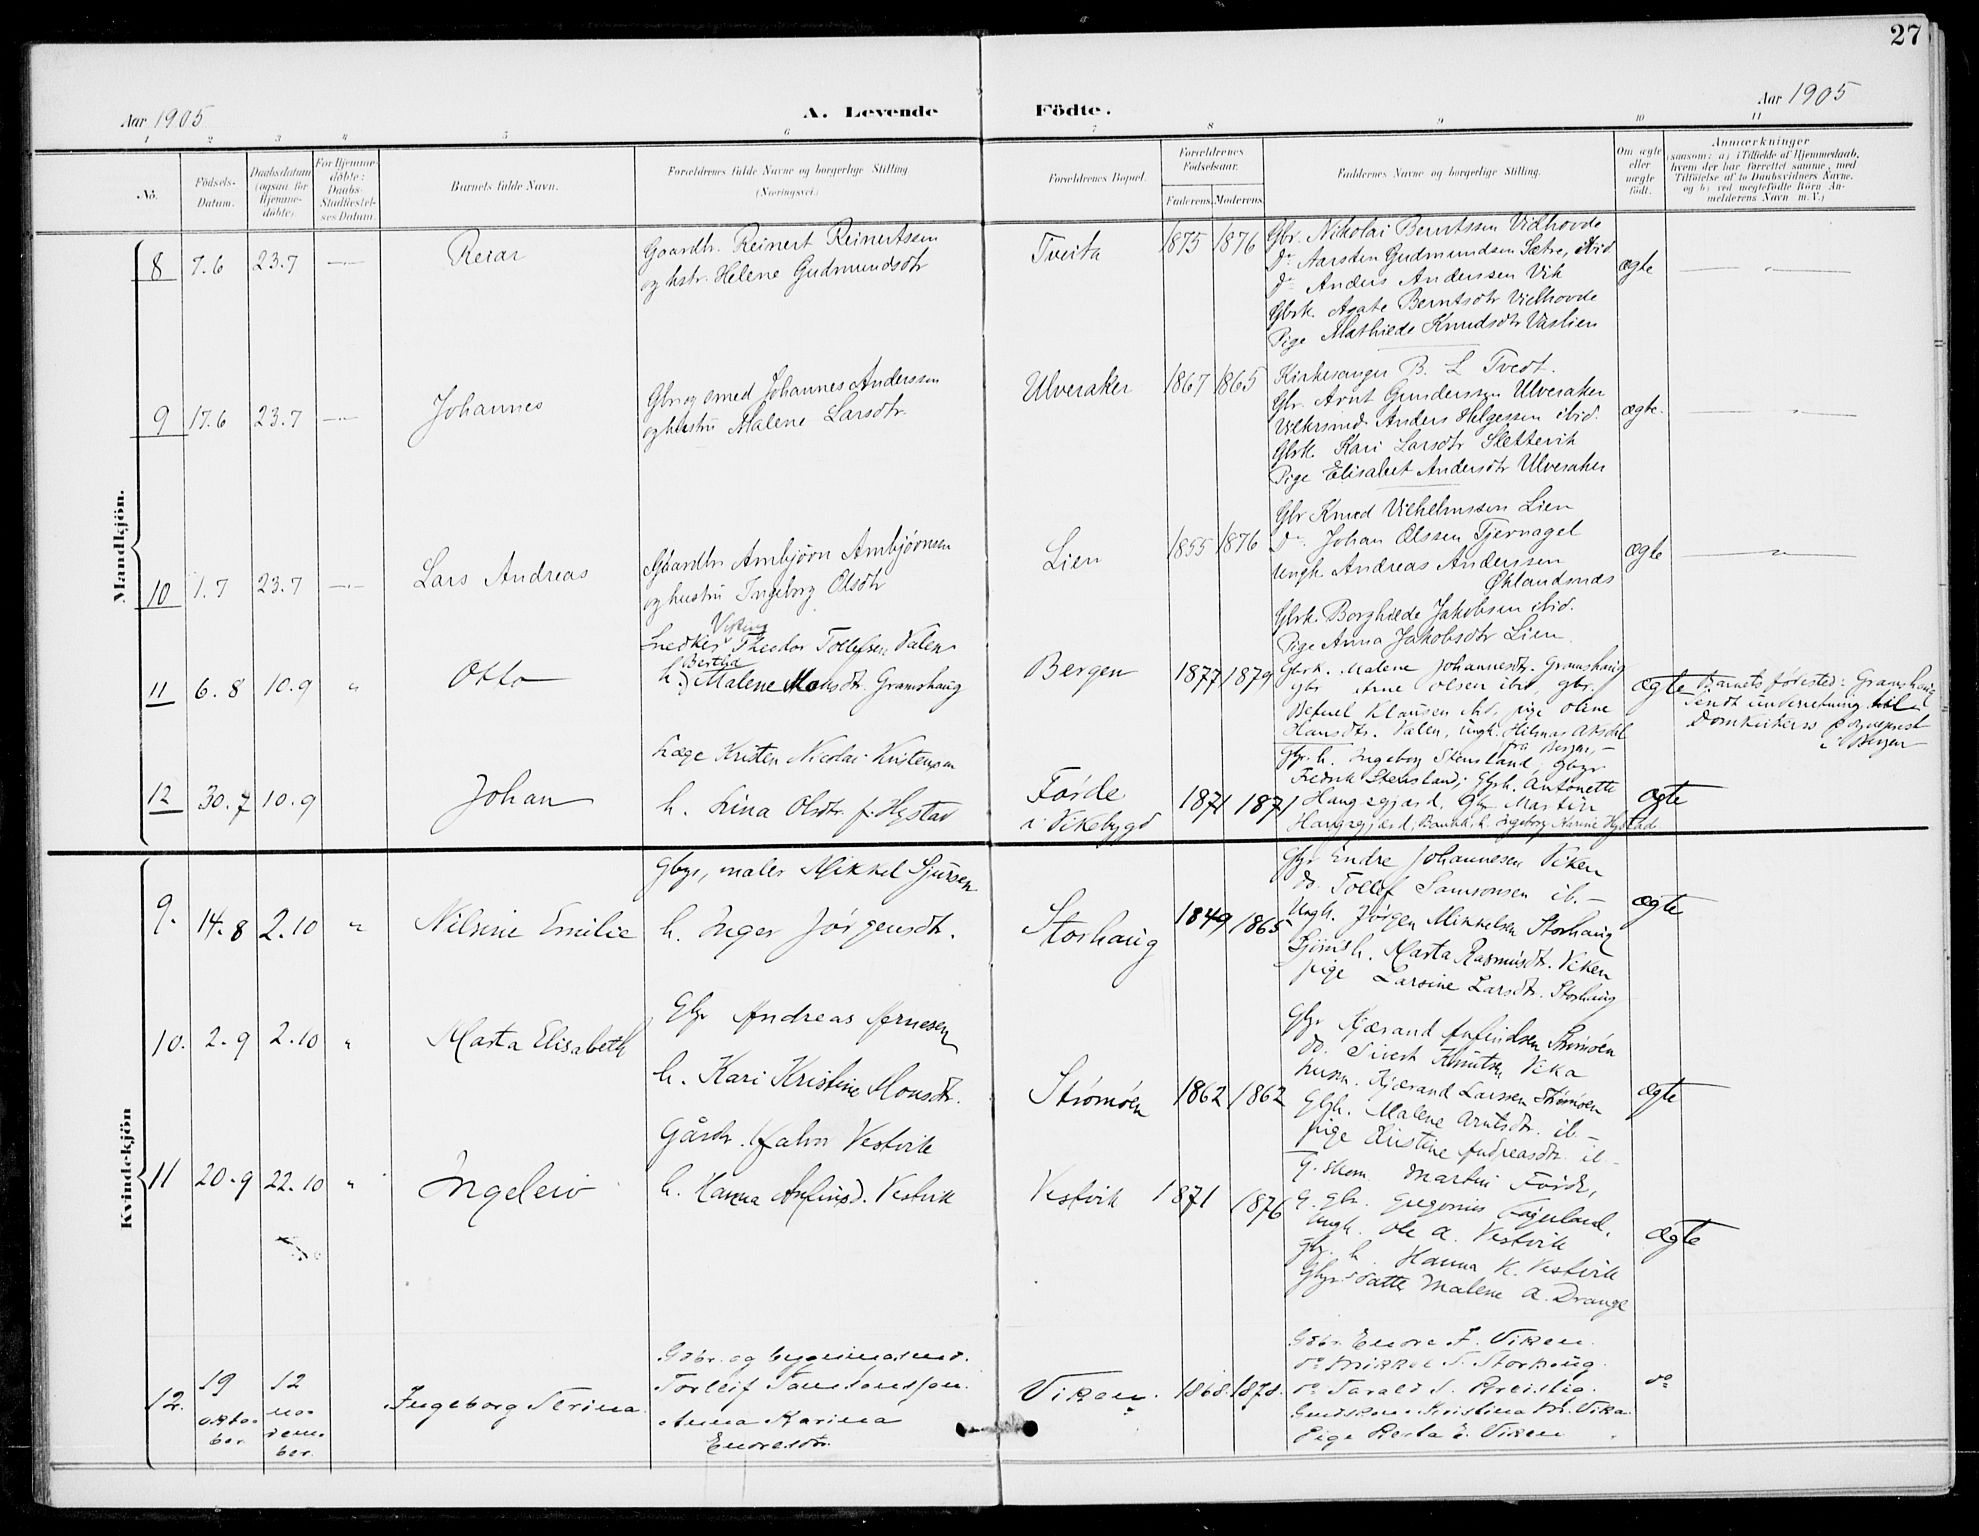 27
Aar 1905
A. Levende
Födte.
Aar 1905
1 2 3 4 5 6 7 8 9 10 11
No.
Födsels-Datum.
Daabsdatum (ogsaa for Hjemme-döbte).
For Hjemme-döbte: Daabs-Stadfæstel-ses Datum.
Barnets fulde Navn.
Forældrenes fulde Navne og borgerlige Stilling
(Næringsvei.)
Forældrenes Bopæl.
Forældrenes Födselsaar.
Faderens. Moderens.
Faddernes Navne og borgerlige Stilling.
Om ægte eller uægte födt.
Anmærkninger
(saasom: a) i Tilfælde af Hjemmedaab, hvem der har forrettet samme, med Tilföielse af to Daabsvidners Navne, og b) ved uægtefödte Börn An-melderens Navn m. V.)
Mandkjön.
8 7.6 23.7 — Reiar
Gaardbr. Reinert Reinertssen
og hstr. Helene Gudmundsdtr
Tveita 1875 1876
Gbr. Nikolai Berntssen Vidhovde
Do Aarsten Gudmundsen Sætre, ibid
Do Anders Anderssen Vik
Gbrk. Agate Berntsdtr Vidhovde
Pige Mathilde Knudsdtr Vaslien
ægte
9 17.6 23.7 — Johannes
Gbr og smed Johannes Anderssen
og hustru Malene Larsdtr.
Ulveraker 1867 1865
Kirkesanger B. L. Tvedt.
Gbr. Arnt Gunderssen Ulveraker
Anders Helgessen ibid.
Gbrk. Kari Larsdtr Slettevik
Pige Elisabet Andersdtr Ulveraker
ægte.
10 1.7 23.7 — Lars Andreas
Gaardbr Arnbjørn Arnbjørnsen
og hustru Ingeborg Olsdtr
Lien 1855 1876
Gbr Knud Vilhelmssen Lien
Do. Johan Olssen Tjernagel
Ungk. Andreas Anderssen
Øklandsnæs
Gbrk. Borghilde Jakobsen ibid.
Pige Anna Jakobsdtr Lien.
ægte
11 6.8 10.9 " Otto
Snedker Theodor Tollefsen Valen
h. Bertha Malene Monsdtr. Gramshaug
Bergen 1877 1879
Gbrk. Malene Johannesdtr. Gramshaug
gbr Arne Olsen ibd, gbr.
Klausen ibd, pige Oline
Hansdtr. Valen, Ungk. Hilmas Aksdal
fra Bergen, —
ægte
Barnets fødested: Gramshaug
Sendt underretning til
Domkirkens sogneprest
i Bergen
12 30.7 10.9 Johan
Læge Kristen Nicolai Kristensen
h. Lina Olsdtr. f. Hystad
Førde
i Vikebygd
1871 1871
Gbr. h. Ingeborg Stensland, Gbr
Fredrik Stensland, Gbrh. Antonette
Haugsgjærd, Gbr Martin
Haugsgjærd, Ingeborg Karine Hystad
ægte
Kvindekjön
9. 14.8 2.10 " Nilsine Emilie
Gbgr, maler Mikkel Sjursen
h. Inger Jørgensdt.
Storhaug 1849 1865
Gbr Endre Johannesen Viken
do. Tollef Samsonsen ib. —
Ungk. Jørgen Mikkelsen Storhaug
h. Marta Rasmusdtr. Viken
pige Larsine Larsdtr. Storhaug
ægte
10. 2.9 2.10 " Marta Elisabeth
Gbr Andreas Arnesen
h. Kari Kristine Monsdt.
Strømøen 1862 1862
Gbr Kjærand Anfindsen Strømøen
do. Sivert Knutsen Vika
husm. Kjærand Larssen Strømøen
Gbrh. Malene Arntsdtr. ib —
pige Kristine Andreasdtr. ib —
ægte
11 20.9 22.10 " Ingeleiv
Gårdbr. Halvor Vestvik
h. Hanna Anfinsd. Vestvik
Vestvik 1871 1876
G. skom. Martin Førde,
G. gbr. Gregorius Fagerland,
Ungk. Ole A. Vestvik
Gbr. h. Hanna K. Vestvik
Gbgr datter Malene A. Drange
ægte
12. 19 oktober 12 november. Ingeborg Serina
Gdbr. og bygningsmd.
Torleif Samsonssøn.
Anna Karina
Endresdtr.
Viken. 1868. 1878.
Gdbr. Endre J. Viken.
do Mikkel S. Storhaug.
do Tarald S. Breilia.
Kristina M. Vika.
Pige Berta E. Viken
do